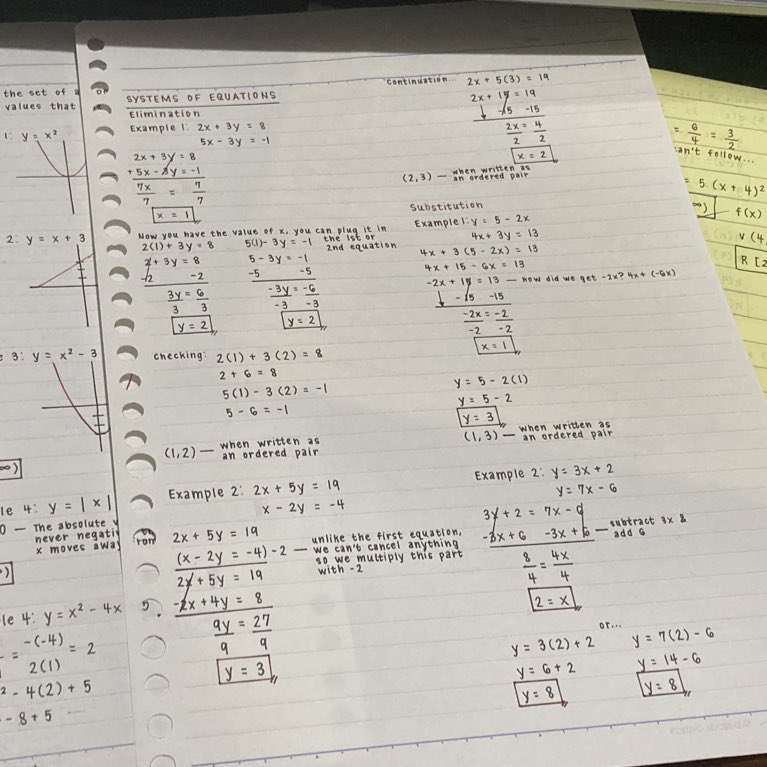 the set of a
values that
1: y = x²
2: y = x + 3
3: y = x² - 3
∞)
le 4: y = |x|
0 — The absolute v
never negati
x moves away
le 4: y = x² - 4x
= -(-4) = 2
2(1)
² - 4(2) + 5
- 8 + 5
SYSTEMS OF EQUATIONS
Elimination
Example 1: 2x + 3y = 8
5x - 3y = -1
2x + 3y = 8
+ 5x - 3y = -1
7x = 7
7 7
x = 1
Now you have the value of x, you can plug it in
the 1st or
2nd equation
2(1) + 3y = 8 5(1) - 3y = -1
2 + 3y = 8 5 - 3y = -1
-2 -2 -5 -5
3y = 6 -3y = -6
3 3 -3 -3
y = 2 y = 2
checking: 2(1) + 3(2) = 8
2 + 6 = 8
5(1) - 3(2) = -1
5 - 6 = -1
(1,2) — when written as
an ordered pair
Example 2: 2x + 5y = 19
x - 2y = -4
2x + 5y = 19
(x - 2y = -4) -2 — unlike the first equation,
we can't cancel anything
so we multiply this part
with -2
2x + 5y = 19
-2x + 4y = 8
9y = 27
9 9
y = 3
continuation... 2x + 5(3) = 19
2x + 15 = 19
↓ -15 -15
2x = 4
2 2
x = 2
(2,3) — when written as
an ordered pair
Substitution
Example 1: y = 5 - 2x
4x + 3y = 13
4x + 3(5 - 2x) = 13
4x + 15 - 6x = 13
-2x + 15 = 13 — how did we get -2x? 4x + (-6x)
↓ -15 -15
-2x = -2
-2 -2
x = 1
y = 5 - 2(1)
y = 5 - 2
y = 3
(1,3) — when written as
an ordered pair
Example 2: y = 3x + 2
y = 7x - 6
3x + 2 = 7x - 6
-3x + 6 -3x + 6 — subtract 3x &
add 6
8 = 4x
4 4
2 = x
or...
y = 3(2) + 2 y = 7(2) - 6
y = 6 + 2 y = 14 - 6
y = 8 y = 8
= 6 = 3
4 2
can't follow...
= 5 (x + 4)²
∞) f(x)
v (4,
R [2